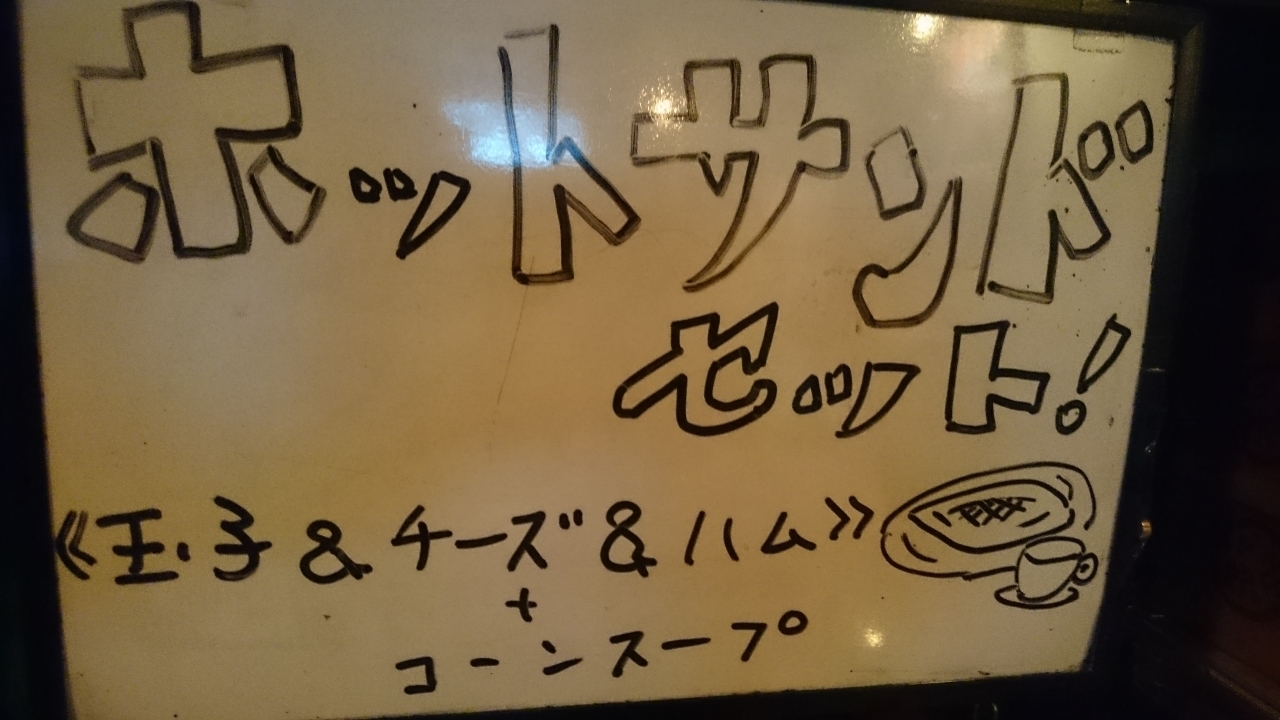 ホットサンド
セット!
《玉子&チーズ&ハム》
+
コーンスープ